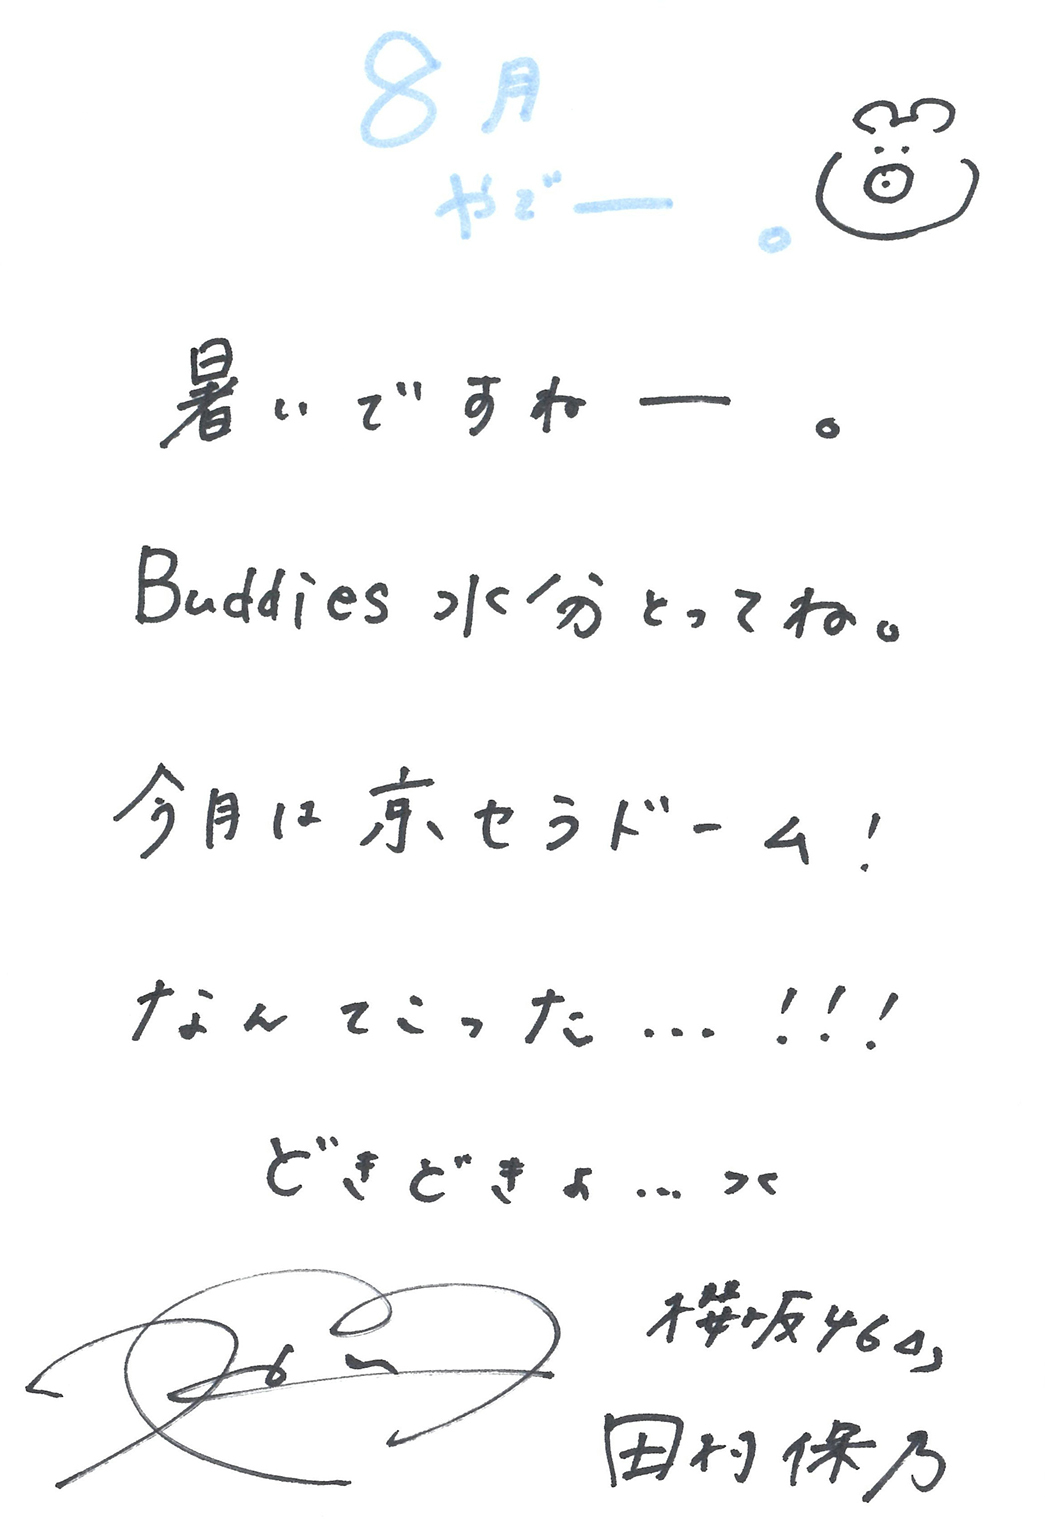 8月
やでー。
暑いですねー。
Buddies水分とってね。
今月は京セラドーム!
なんてこった...!!!
どきどきょ...><
櫻坂46
田村保乃